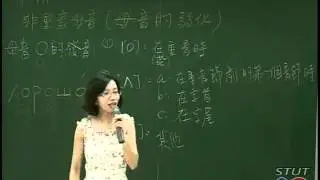 非重音母音(母音的弱化)
母音O的發音 ① [o]: 在重音時
хорошо [ʌ]: a. 在重音節前的第一個音節時
b. 在字首
c. 在字尾
]: 其他
STUT